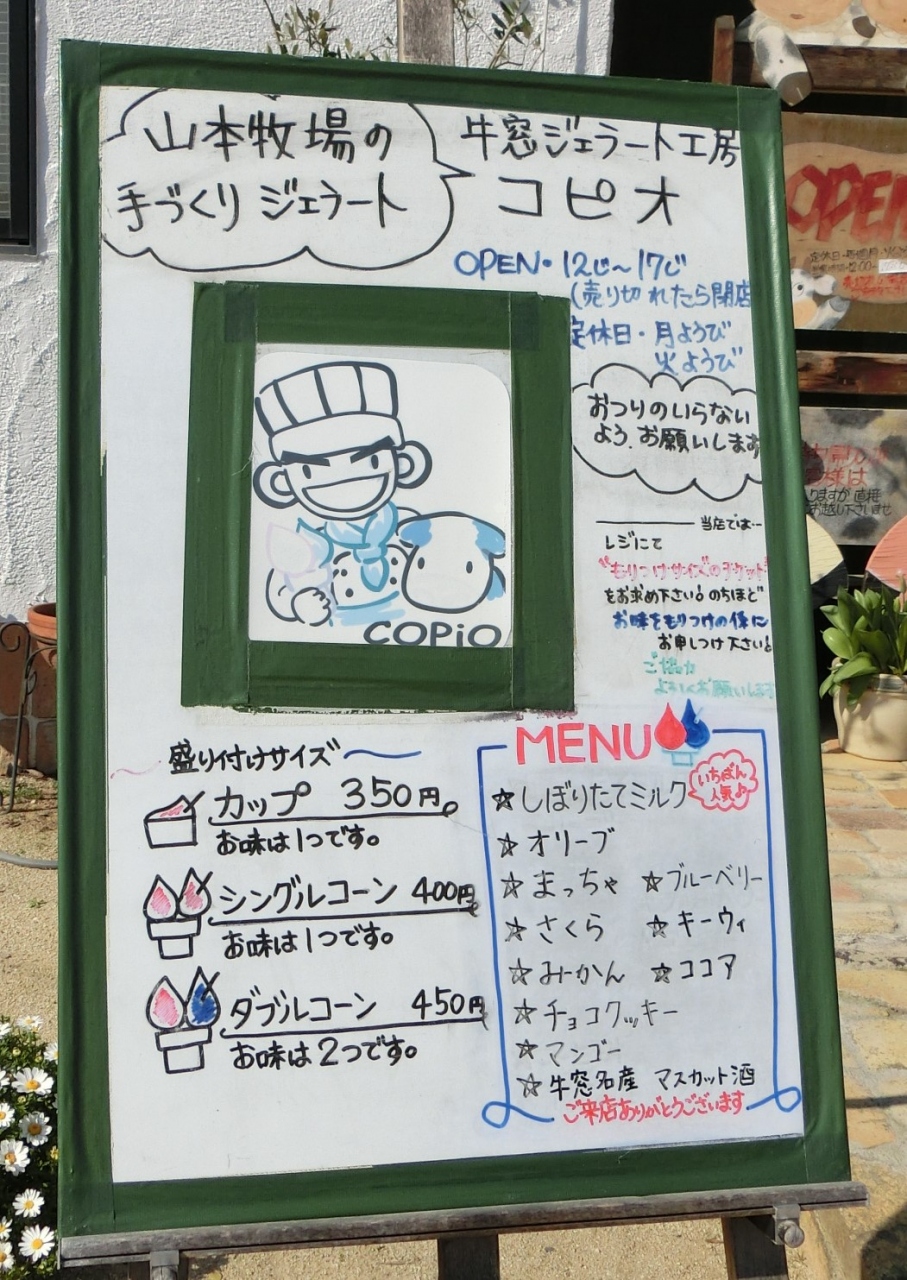 山本牧場の
手づくり ジェラート
牛窓ジェラート工房
コピオ
OPEN・12じ〜17じ
(売り切れたら閉店
定休日・月ようび
火ようび
おつりのいらない
よう、お願いします
当店では--
レジにて
"もりつけサイズ"のチケット"
をお求め下さい! のちほど
お味をもりつけの係に
お申しつけ下さい!
ご協力
よろしくお願いします
COPiO
盛り付けサイズ
カップ 350円。
お味は1つです。
シングルコーン 400円。
お味は1つです。
ダブルコーン 450円
お味は2つです。
MENU
☆しぼりたてミルク
いちばん
人気♪
☆オリーブ
☆まっちゃ ☆ブルーベリー
☆さくら ☆キーウィ
☆みかん ☆ココア
☆チョコクッキー
☆マンゴー
☆牛窓名産 マスカット酒
ご来店ありがとうございます
OPEN